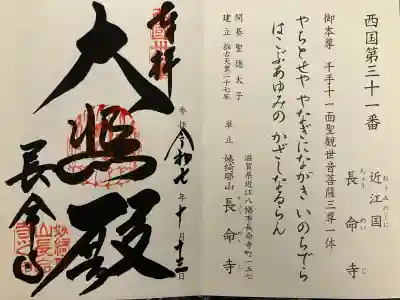 西国第三十一番
おうみのくに
近江国
ちょう めい じ
長命寺
御本尊 千手十一面聖観世音菩薩三尊一体
やちとせや やなぎにながき いのちでら
はこぶあゆみの かざしなるらん
滋賀県近江八幡市長命寺町一五七
開基 聖徳太子 単立 姨綺耶山 長命寺
建立 推古天皇二十七年
奉拝
令和七年十月十三日
大悲殿
長命寺